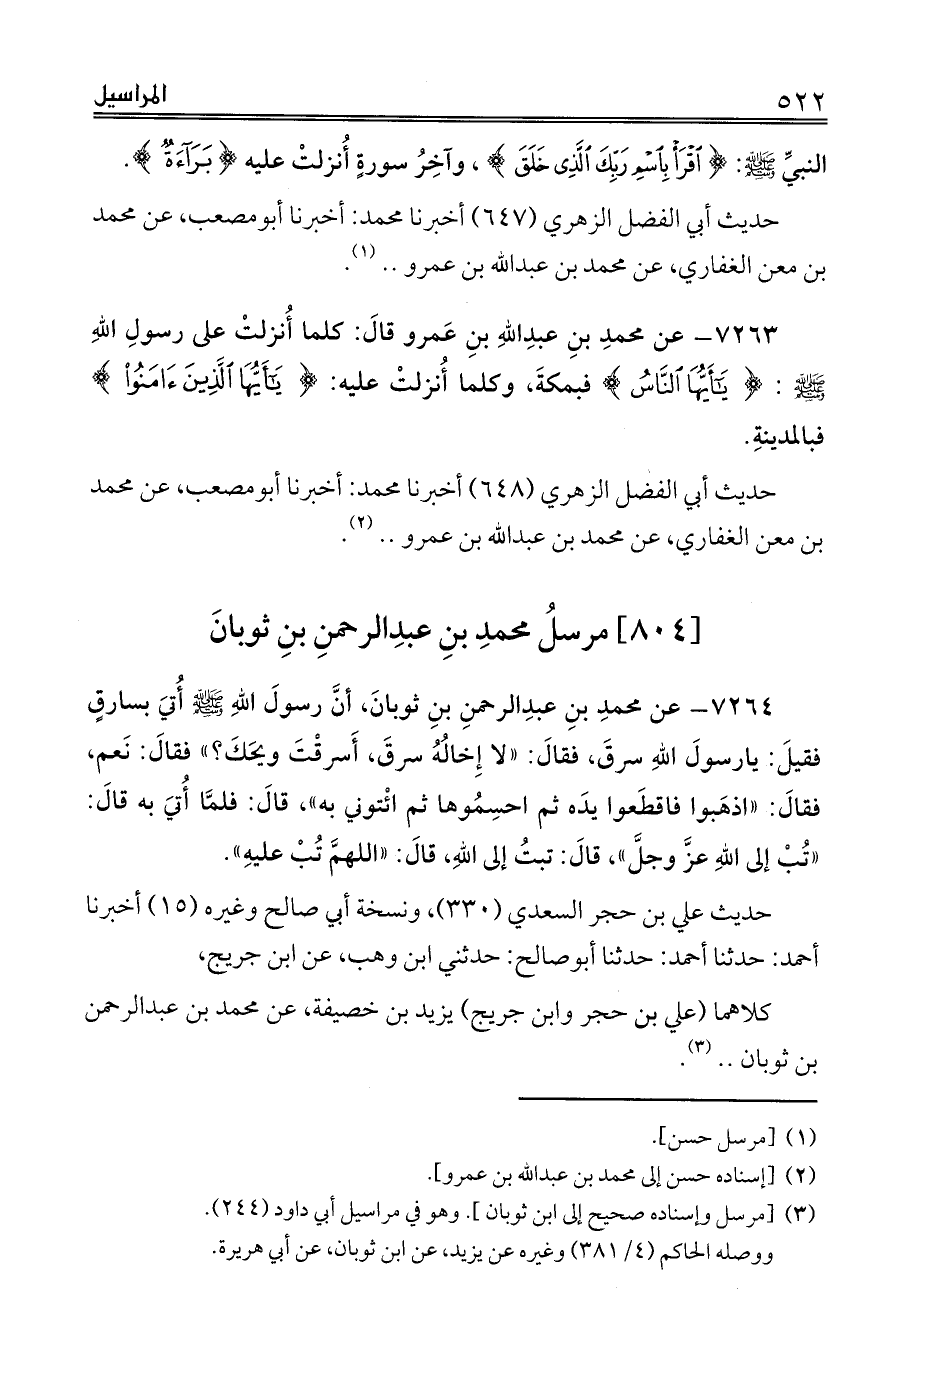 ٥٢٢ المراسيل
النبيِّ ﷺ: ﴿ ٱقۡرَأۡ بِٱسۡمِ رَبِّكَ ٱلَّذِى خَلَقَ ﴾، وآخِرُ سورةٍ أُنزلتْ عليه ﴿ بَرَآءَةٌ ﴾.
حديث أبي الفضل الزهري (٦٤٧) أخبرنا محمد: أخبرنا أبو مصعب، عن محمد
بن معن الغفاري، عن محمد بن عبدالله بن عمرو .. (١).
٧٢٦٣– عن محمدِ بنِ عبدِاللهِ بنِ عَمرو قالَ: كلما أُنزلتْ على رسولِ اللهِ
ﷺ : ﴿ يَٰٓأَيُّهَا ٱلنَّاسُ ﴾ فبمكةَ، وكلما أُنزلتْ عليه: ﴿ يَٰٓأَيُّهَا ٱلَّذِينَ ءَامَنُواْ ﴾
فبالمدينةِ.
حديث أبي الفضل الزهري (٦٤٨) أخبرنا محمد: أخبرنا أبو مصعب، عن محمد
بن معن الغفاري، عن محمد بن عبدالله بن عمرو .. (٢).
[٨٠٤] مرسلُ محمدِ بنِ عبدِالرحمنِ بنِ ثوبانَ
٧٢٦٤– عن محمدِ بنِ عبدِالرحمنِ بنِ ثوبانَ، أنَّ رسولَ اللهِ ﷺ أُتيَ بسارقٍ
فقيلَ: يارسولَ اللهِ سرقَ، فقالَ: «لا إِخالُهُ سرقَ، أَسرقْتَ ويحَكَ؟» فقالَ: نَعم،
فقالَ: «اذهَبوا فاقطَعوا يدَه ثم احسِمُوها ثم ائْتوني به»، قالَ: فلمَّا أُتيَ به قالَ:
«تُبْ إلى اللهِ عزَّ وجلَّ»، قالَ: تبتُ إلى اللهِ، قالَ: «اللهمَّ تُبْ عليهِ».
حديث علي بن حجر السعدي (٣٣٠)، ونسخة أبي صالح وغيره (١٥) أخبرنا
أحمد: حدثنا أحمد: حدثنا أبو صالح: حدثني ابن وهب، عن ابن جريج،
كلاهما (علي بن حجر وابن جريج) يزيد بن خصيفة، عن محمد بن عبدالرحمن
بن ثوبان .. (٣).
(١) [مرسل حسن].
(٢) [إسناده حسن إلى محمد بن عبدالله بن عمرو].
(٣) [مرسل وإسناده صحيح إلى ابن ثوبان ]. وهو في مراسيل أبي داود (٢٤٤).
ووصله الحاكم (٤/ ٣٨١) وغيره عن يزيد، عن ابن ثوبان، عن أبي هريرة.